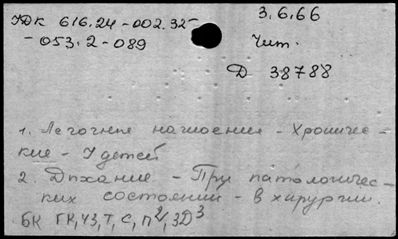 УДК 616.24-002.32-
3.6.66
-053.2-089
Чит.
Д 38788
1. Легочные нагноения - Хроничес-
кие - У детей
2. Дыхание - При патологичес-
ких состояниях - в хирургии.
БК ГК, ЧЗ, Т, С, П2, ЗД3